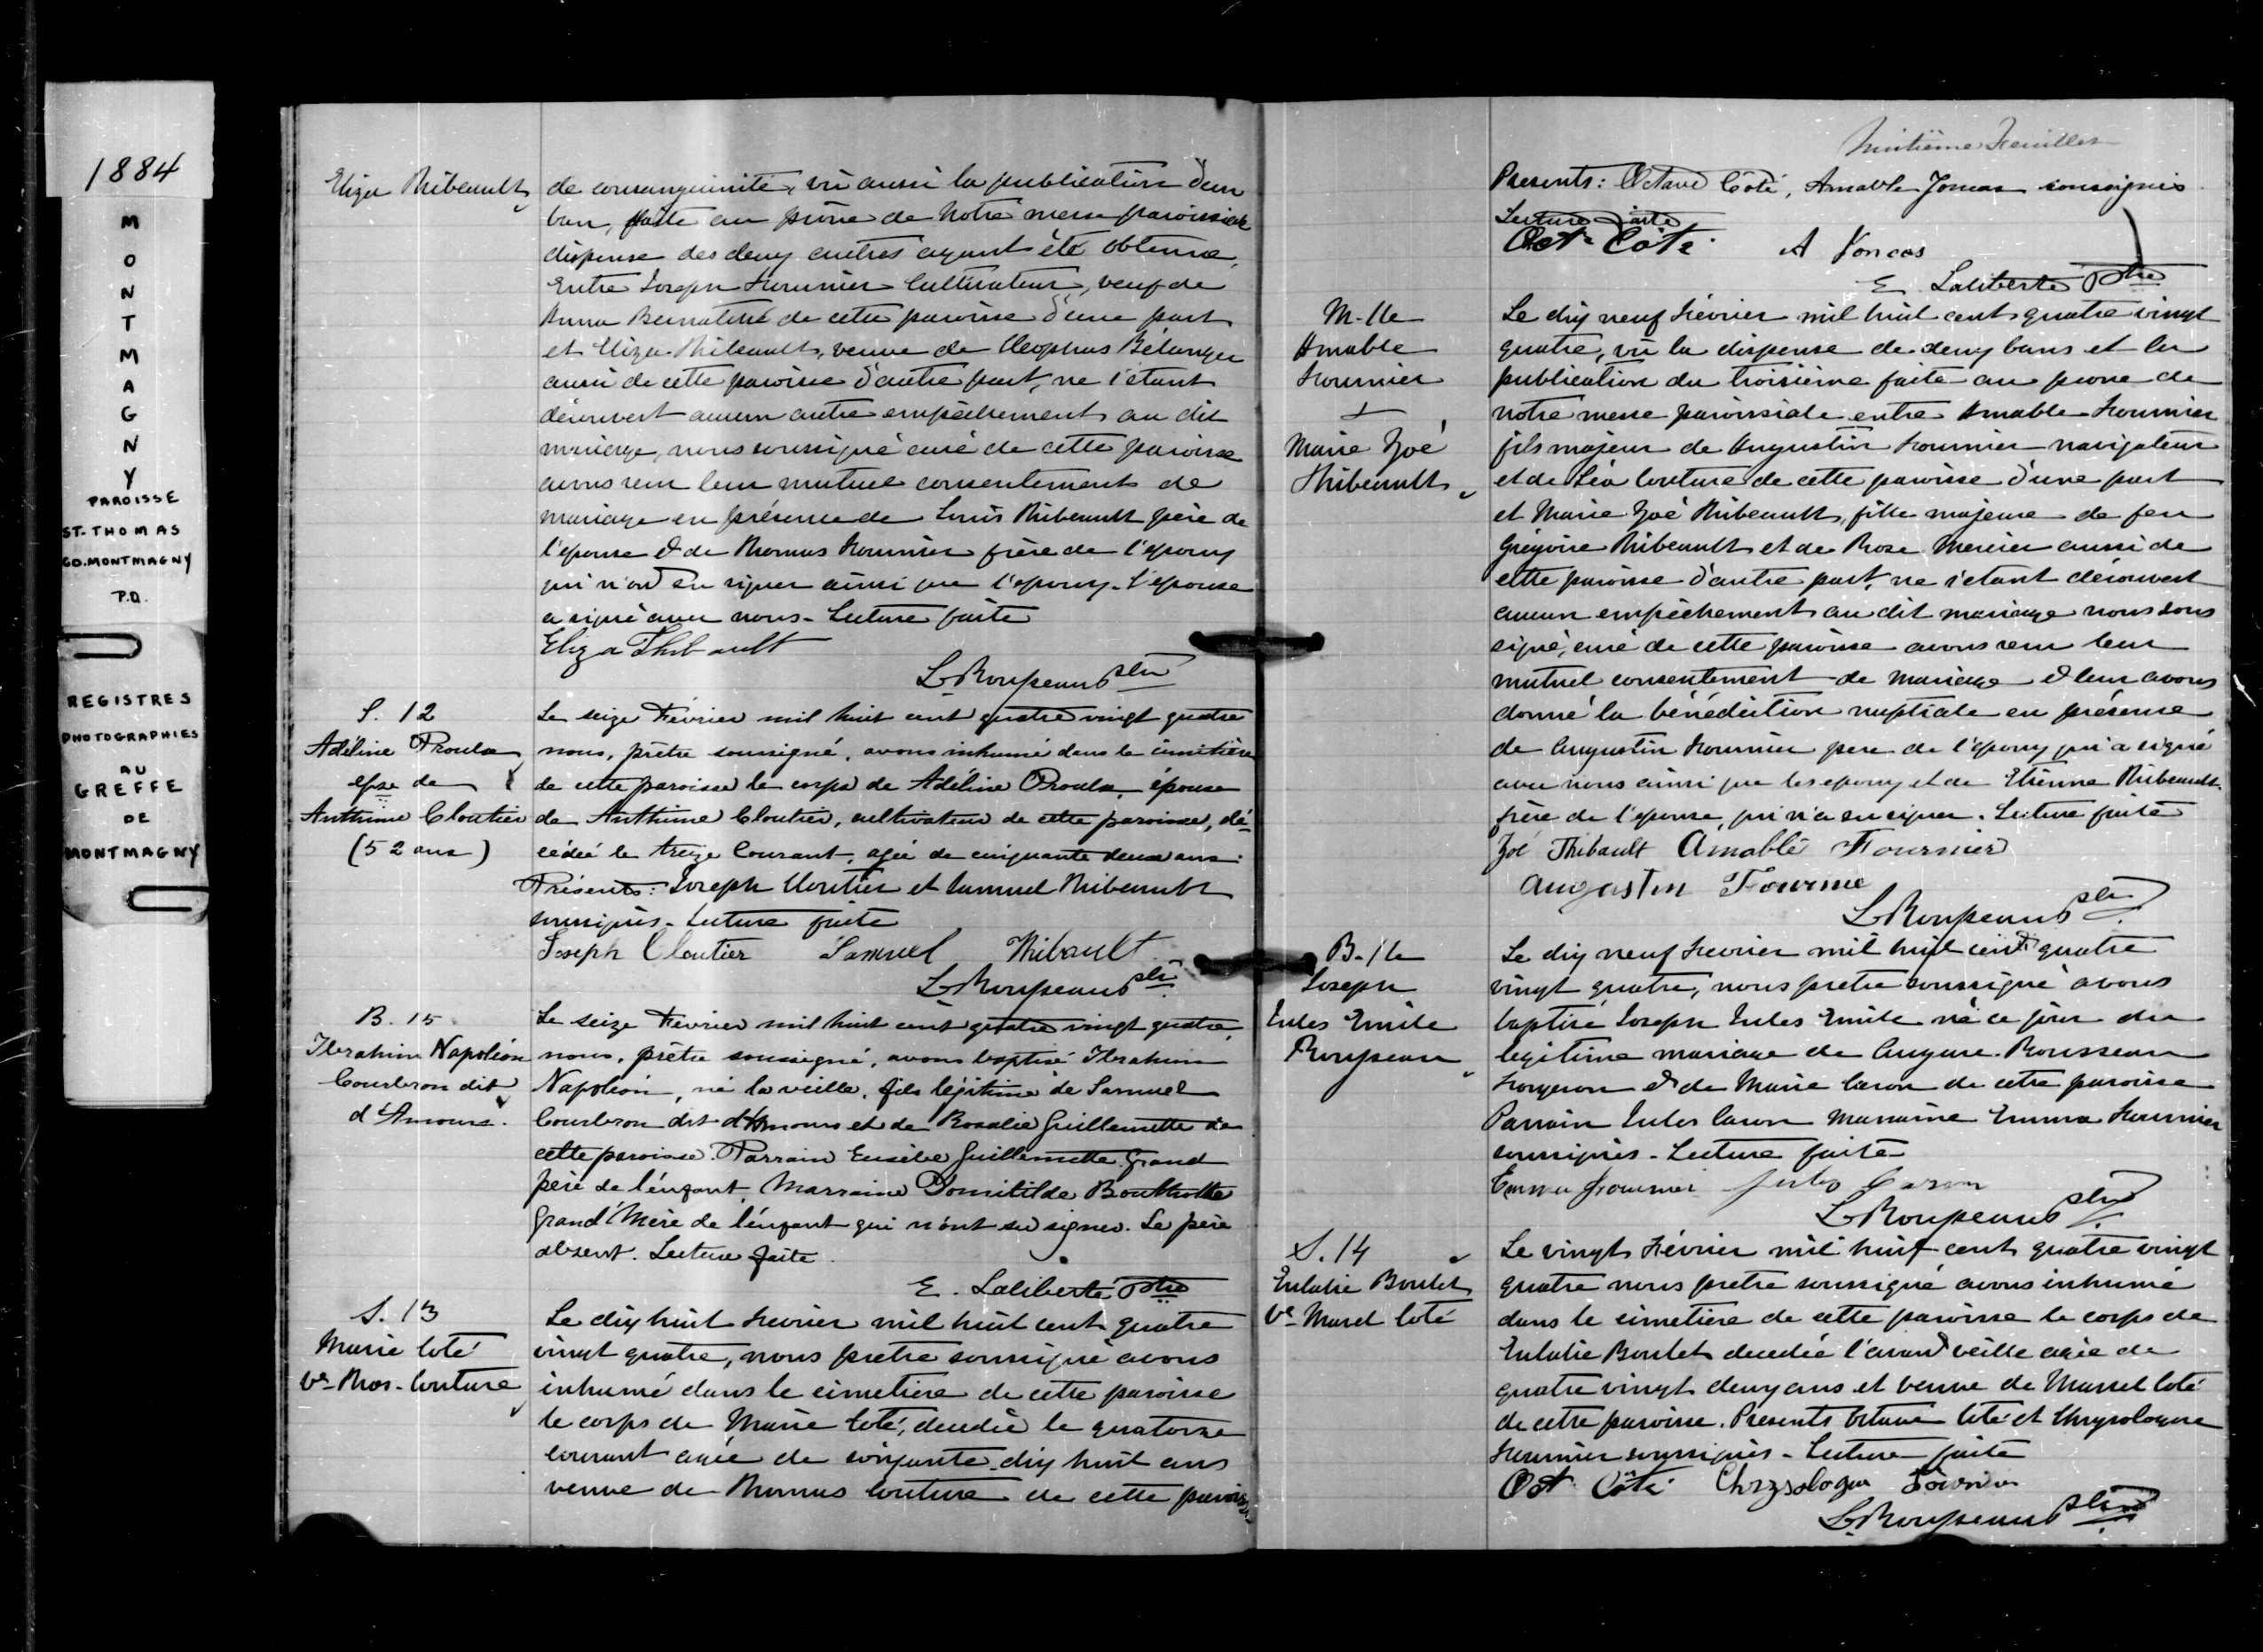 1884
MONTMAGNY
PAROISSE
ST. THOMAS
CO. MONTMAGNY
P.Q.
REGISTRES
PHOTOGRAPHIES
AU
GREFFE
DE
MONTMAGNY
Eliza Thibeault
de consanguinité, vu aussi la publication d'un
ban, faite au prône de Notre messe paroissiale
dispense des deux autres ayant été obtenue,
Entre Joseph Fournier Cultivateur, veuf de
Anna Bernatchè de cette paroisse d'une part
et Eliza Thibeault, veuve de Cleophas Bélanger
aussi de cette paroisse d'autre part, ne s'étant
découvert aucun autre empêchement au dit
mariage, nous soussigné curé de cette paroisse
avons reçu leur mutuel consentement de
mariage en présence de Louis Thibeault père de
l'épouse & de Thomas Fournier frère de l'époux
qui n'ont su signer ainsi que l'époux. L'épouse
a signé avec nous - Lecture faite
Eliza Thibault
L Rousseau ptre
S. 12
Adéline Proulx
epse de
Anthime Cloutier
(52 ans)
Le seize Février mil huit cent quatre vingt quatre
nous, prêtre soussigné, avons inhumé dans le cimetière
de cette paroisse le corps de Adéline Proulx, épouse
de Anthime Cloutier, cultivateur de cette paroisse, dé-
cédée le treize Courant, agée de cinquante deux ans.
Présents: Joseph Cloutier et Samuel Thibeault
soussignés - Lecture faite
Joseph Cloutier Samuel Thibault
L Rousseau ptre
B. 15
Ibrahim Napoléon
Courberon dit
d'Amours.
Le seize Février mil huit cent quatre vingt quatre,
nous, prêtre soussigné, avons baptisé Ibrahim
Napoléon, né la veille, fils légitime de Samuel
Courberon dit d'Amours et de Rosalie Guillemette de
cette paroisse. Parrain Eusèbe Guillemette Grand
père de l'enfant, Marraine Domitilde Bouthotte
Grand'Mère de l'enfant qui n'ont su signer. Le père
absent. Lecture faite.
E. Laliberté Ptre
S. 13
Marie Coté
Ve Thos. Couture
Le dix huit Fevrier mil huit cent quatre
vingt quatre, nous pretre soussigné avons
inhumé dans le cimetiere de cette paroisse
le corps de Marie Coté, decedée le quatorze
courant agée de soixante dix huit ans
veuve de Thomas Couture de cette paroisse
Huitième Feuillet
Presents: Octave Coté, Amable Joncas soussignés
Lecture faite
Oct. Côté A Joncas
E. Laliberté Ptre
M. 11e
Amable
Fournier
+
Marie Zoé
Thibeault
Le dix neuf Février mil huit cent quatre vingt
quatre, vu la dispense de deux bans et la
publication du troisième faite au prone de
notre messe paroissiale entre Amable Fournier
fils majeur de Augustin Fournier navigateur
et de Léa Couture de cette paroisse d'une part
et Marie Zoé Thibeault, fille majeure de feu
Grégoire Thibeault et de Rose Mercier aussi de
cette paroisse d'autre part, ne s'etant découvert
aucun empêchement au dit mariage nous sous
signé, curé de cette paroisse avons reçu leur
mutuel consentement de mariage & leur avons
donné la bénédiction nuptiale en présence
de Augustin Fournier pere de l'époux qui a signé
avec nous ainsi que les epoux et de Etienne Thibeault
frère de l'épouse, qui n'a su signer. Lecture faite
Zoé Thibault Amable Fournier
Augustin Fournie
L Rousseau ptre
B. 16
Joseph
Jules Emile
Rousseau
Le dix neuf Fevrier mil huit cent quatre
vingt quatre, nous pretre soussigné avons
baptisé Joseph Jules Emile né ce jour du
légitime mariage de Rousseau
Forgeron & de Marie Caron de cette paroisse
Parrain Jules Caron Marraine Emma Fournier
soussignés - Lecture faite
Emma Fournier Jules Caron
L Rousseau ptre
S. 14
Eulalie Boulet
Ve Marcel Coté
Le vingt Février mil huit cent quatre vingt
quatre nous pretre soussigné avons inhumé
dans le cimetiere de cette paroisse le corps de
Eulalie Boulet decedée l'avant veille agée de
quatre vingt deux ans et veuve de Marcel Coté
de cette paroisse. Presents Octave Coté et Chrysologue
Fournier soussignés - Lecture faite
Oct Côté Chrysologue Fournier
L Rousseau ptre